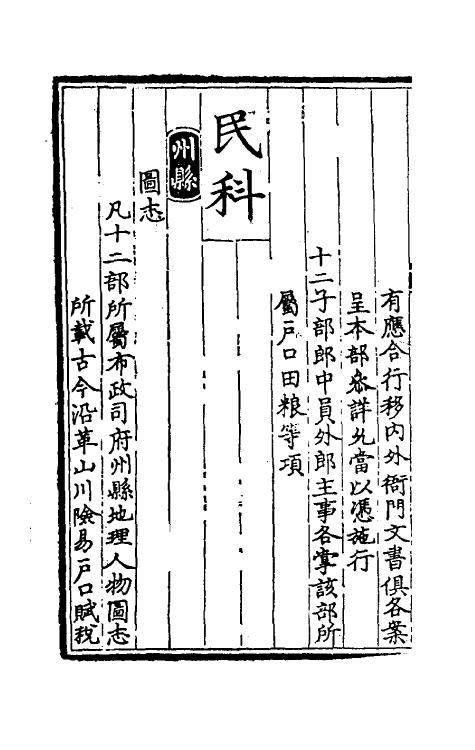 有應合行移内外衙門文書俱各案
呈本部叅詳允當以憑施行
十二子部郎中員外郎主事各掌該部所
屬戶口田粮等項
民科
州縣
圖志
凡十二部所屬布政司府州縣地理人物圖志
所載古今沿革山川險易戶口賦稅